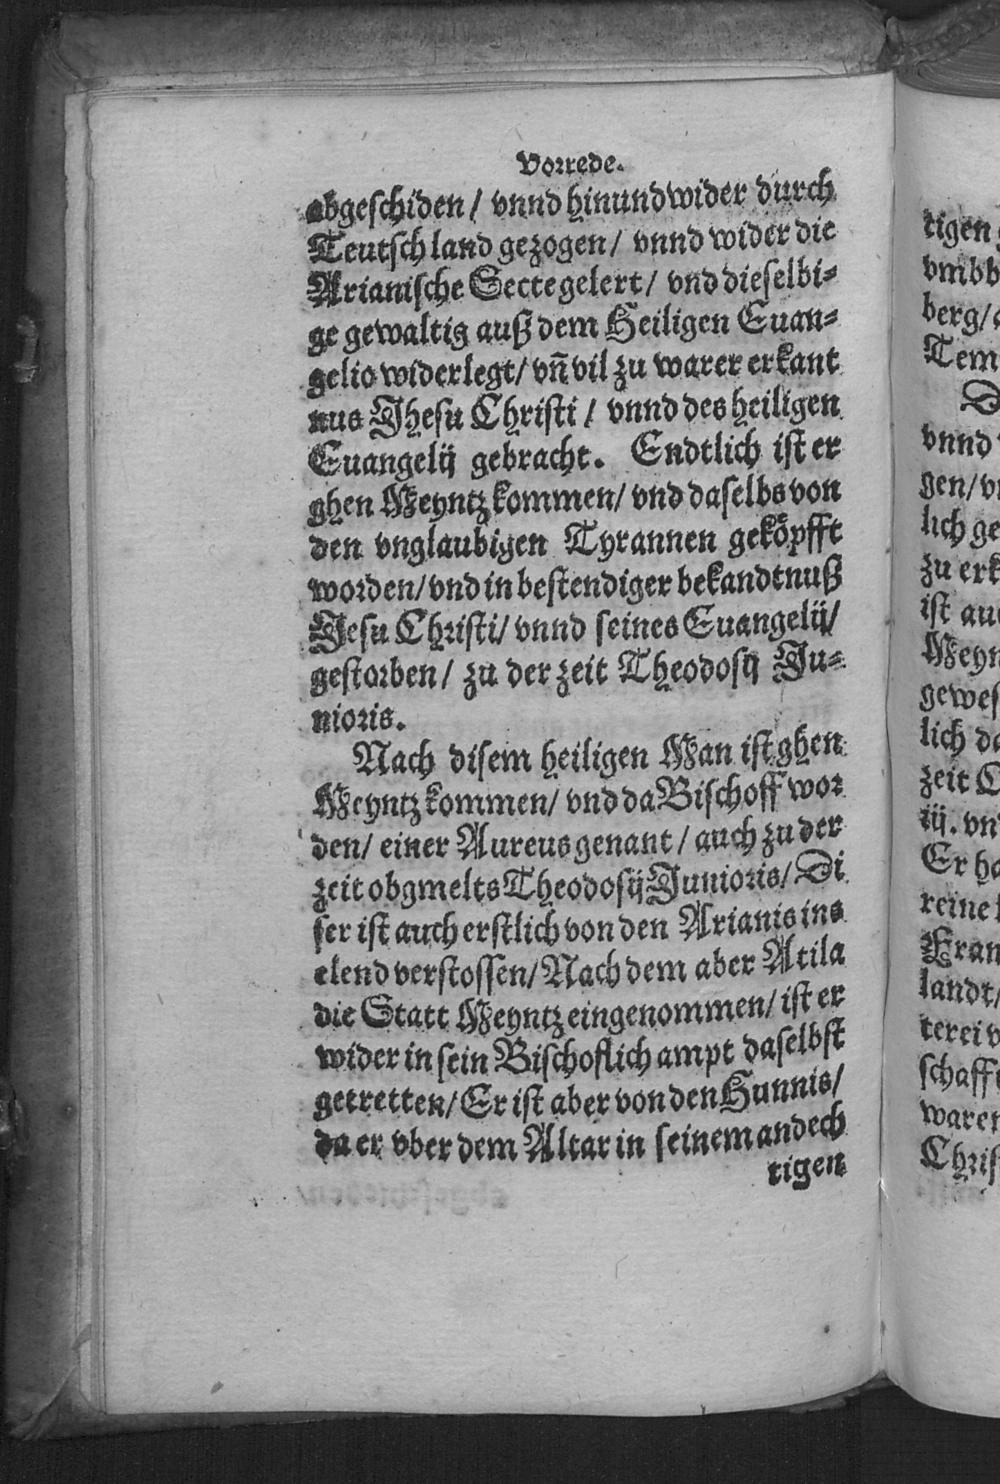 Vorrede.
abgeschiden / vnnd hinundwider durch
Teutsch land gezogen / vnnd wider die
Arianische Secte gelert / vnd dieselbi⸗
ge gewaltig auß dem Heiligen Euan⸗
gelio widerlegt / vñ vil zu warer erkant
nus Jhesu Christi / vnnd des heiligen
Euangelij gebracht. Endtlich ist er
ghen Meyntz kommen / vnd daselbs von
den vnglaubigen Tyrannen geköpfft
worden / vnd in bestendiger bekandtnuß
Jesu Christi / vnnd seines Euangelij /
gestorben / zu der zeit Theodosij Ju⸗
nioris.
Nach disem heiligen Man ist ghen
Meyntz kommen / vnd da Bischoff wor
den / einer Aureus genant / auch zu der
zeit obgmelts Theodosij Junioris / Di
ser ist auch erstlich von den Arianis ins
elend verstossen / Nach dem aber Atila
die Statt Meyntz eingenommen / ist er
wider in sein Bischoflich ampt daselbst
getretten / Er ist aber von den Hunnis /
da er vber dem Altar in seinem andech
tigen
tigen
vmbb
berg /
Tem
D
vnnd
gen / v
lich ge
zu erk
ist au
Meyn
gewes
lich da
zeit C
iij. vn
Er ha
reine
Fran
landt /
terei v
schaff
waren
Chris